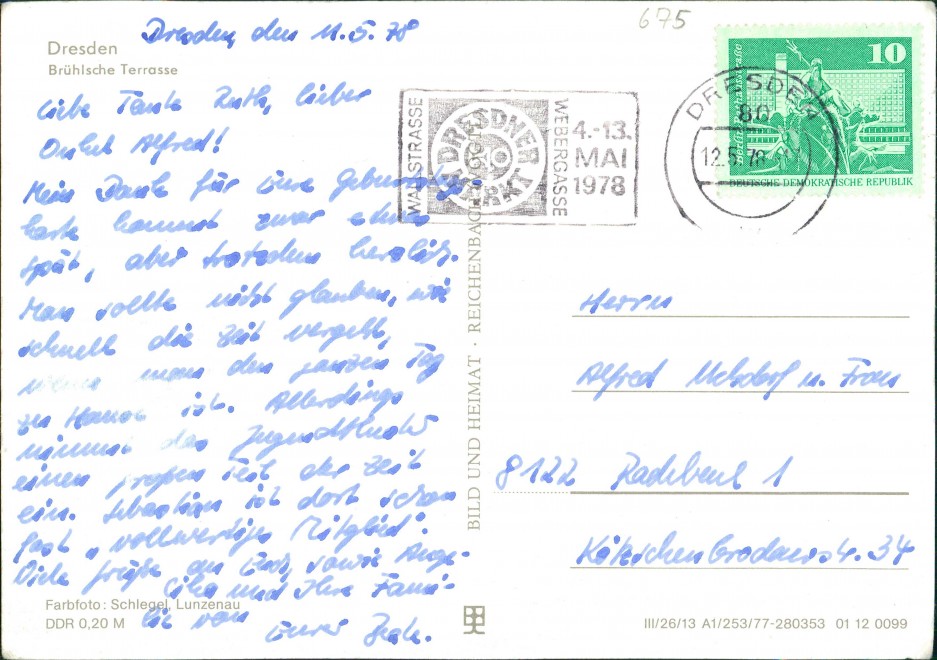 675
Dresden, den 11.5.78
Dresden
Brühlsche Terrasse
Liebe Tante Ruth, lieber
Onkel Alfred!
Mein Dank für Eure Geburtstags-
karte kommt zwar etwas
spät, aber trotzdem herzlich.
Man sollte nicht glauben, wie
schnell die Zeit vergeht,
wenn man den ganzen Tag
zu Hause ist. Allerdings
nimmt das Jugendtheater
einen großen Teil der Zeit
ein. Sebastian ist dort schon
fast "vollwertiges Mitglied".
Viele Grüße an Euch, sowie Ange-
lika und Ihre Fami-
lie von
Eurer
Farbfoto: Schlegel, Lunzenau
DDR 0,20 M
BILD UND HEIMAT · REICHENBACH
WALLSTRASSE
DRESDNER MARKT
WEBERGASSE
4.-13.
MAI
1978
DRESDEN
80
12.5.78
10
DEUTSCHE DEMOKRATISCHE REPUBLIK
Herrn
Alfred u. Frau
8122 Radebeul 1
Kötzschenbrodaerstr. 34
III/26/13 A1/253/77-280353 01 12 0099